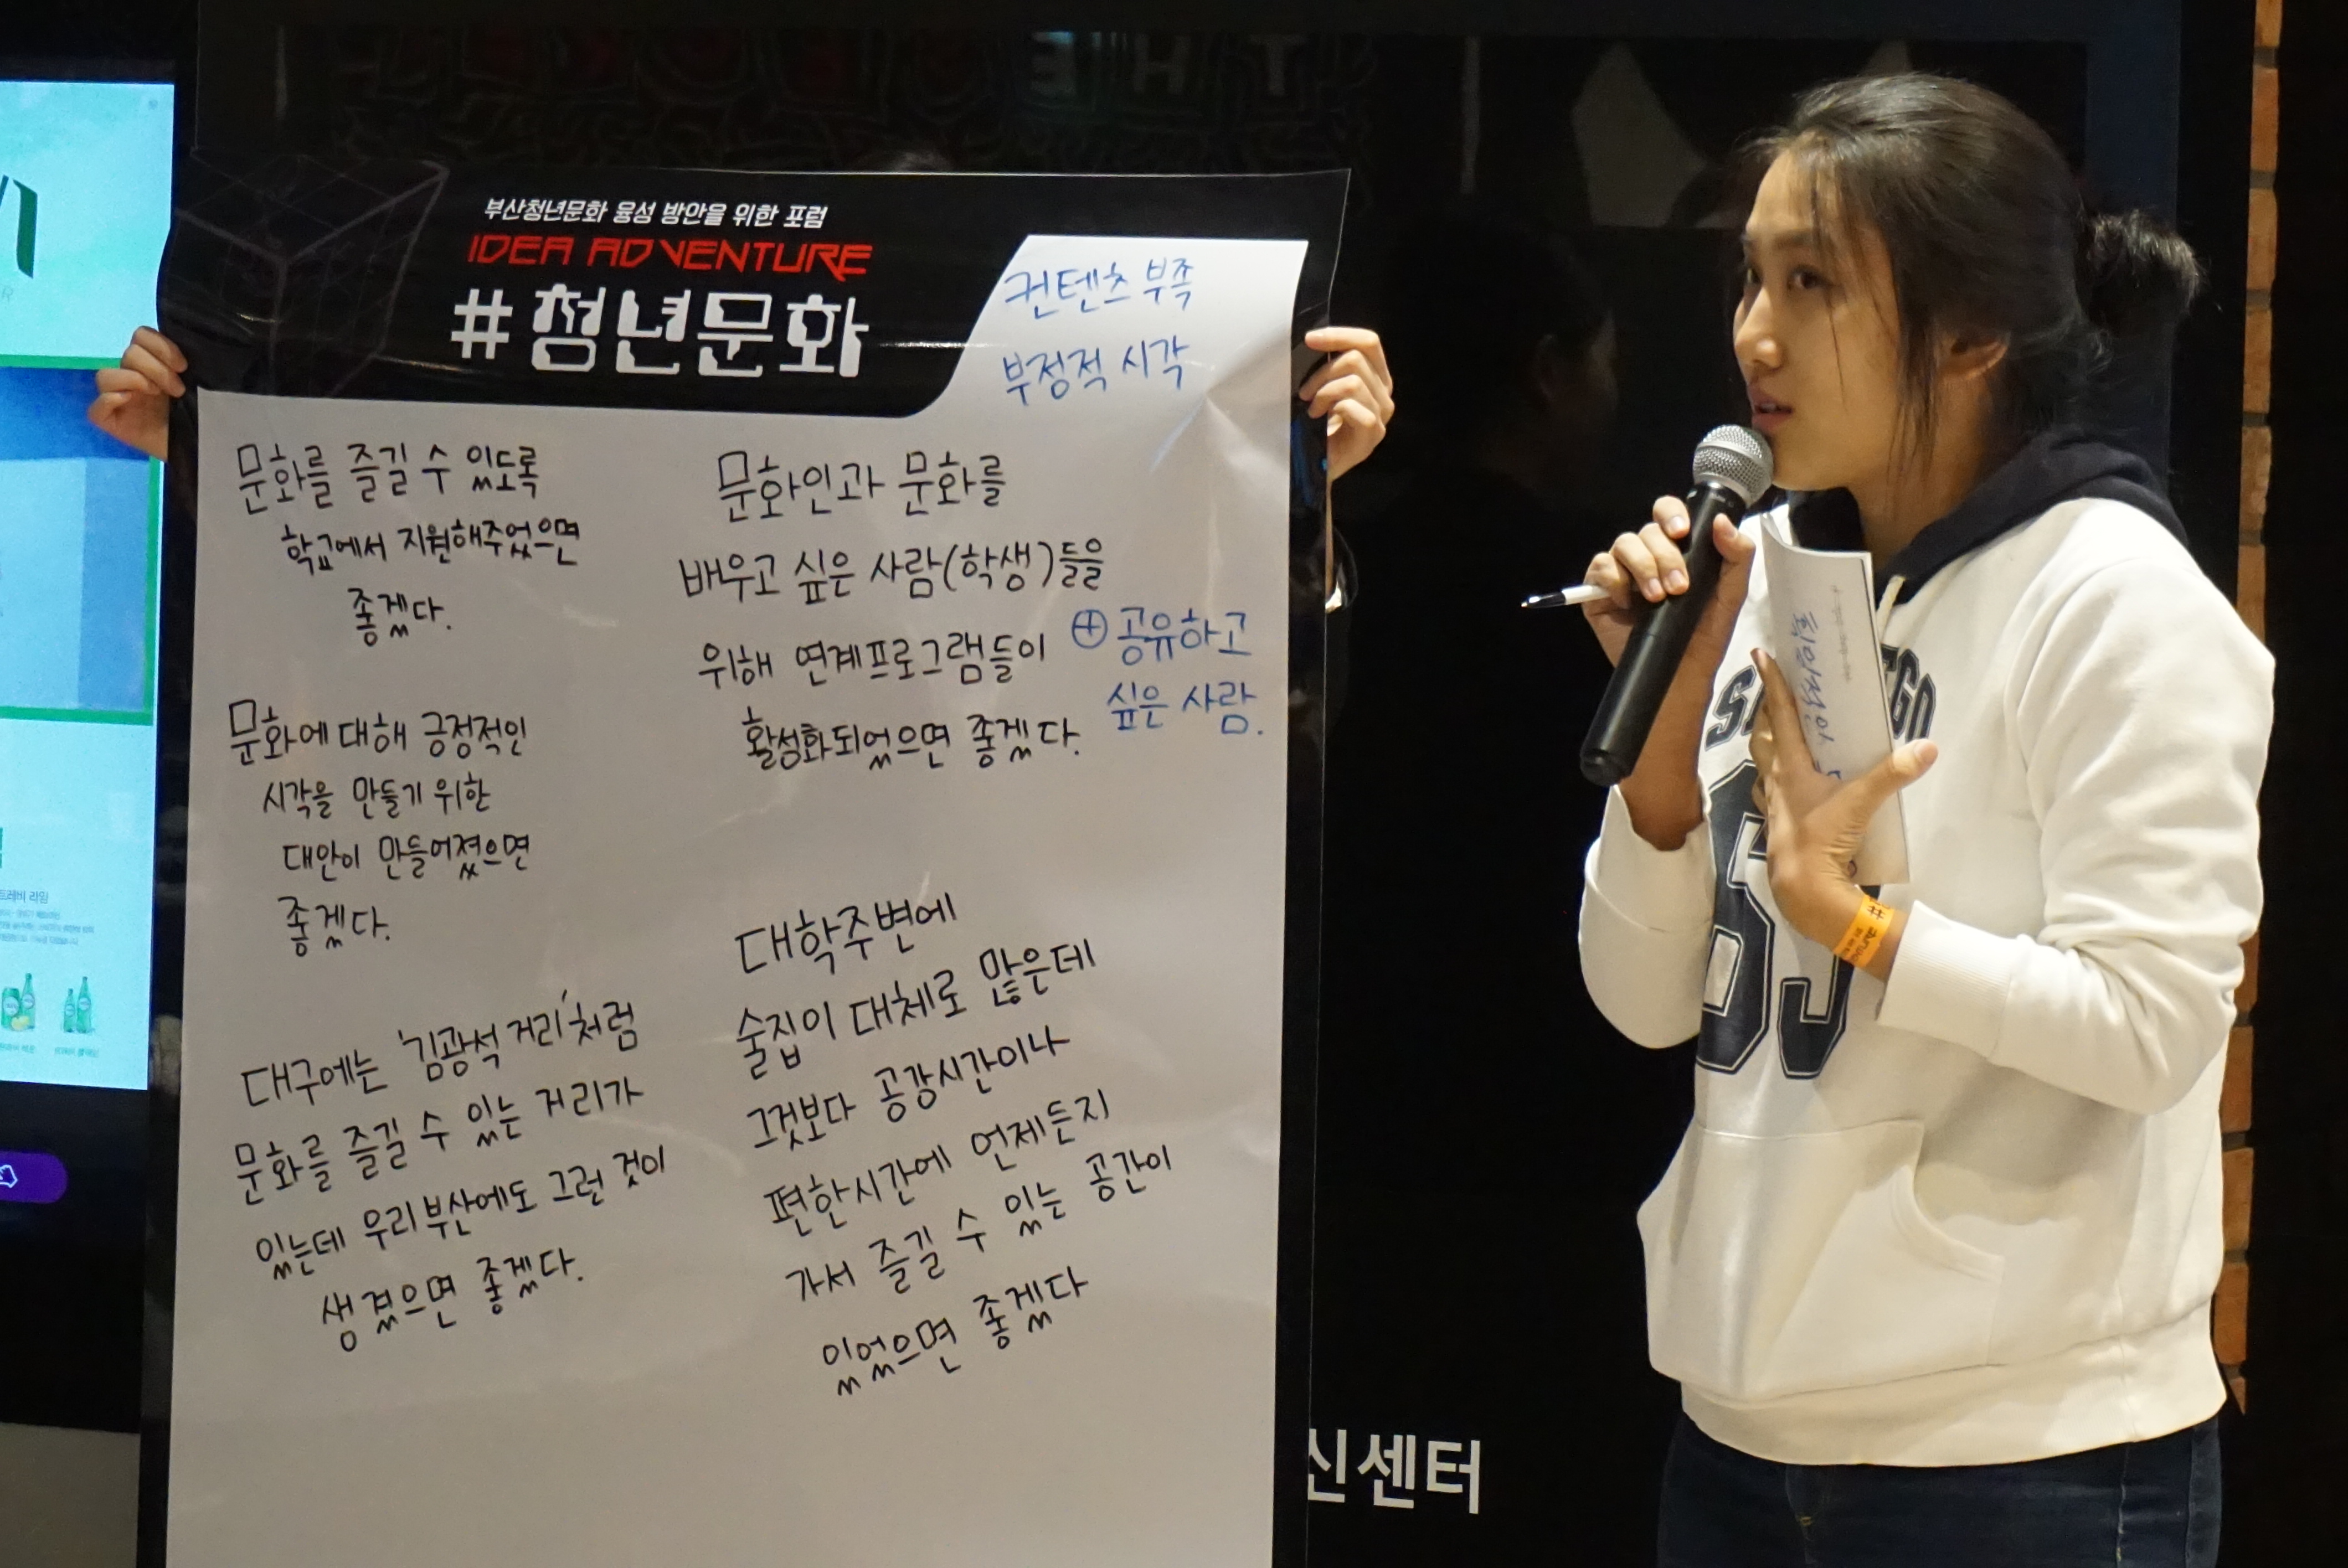 부산청년문화 융성 방안을 위한 포럼
IDEA ADVENTURE
#청년문화
컨텐츠 부족
부정적 시각
문화를 즐길 수 있도록
학교에서 지원해주었으면
좋겠다.
문화인과 문화를
배우고 싶은 사람(학생)들을
위해 연계프로그램들이
활성화되었으면 좋겠다.
⊕ 공유하고
싶은 사람.
문화에 대해 긍정적인
시각을 만들기 위한
대안이 만들어졌으면
좋겠다.
대구에는 '김광석 거리'처럼
문화를 즐길 수 있는 거리가
있는데 우리 부산에도 그런 것이
생겼으면 좋겠다.
대학주변에
술집이 대체로 많은데
그것보다 공강시간이나
편한시간에 언제든지
가서 즐길 수 있는 공간이
있었으면 좋겠다
신센터
트레비 라임
THE
65